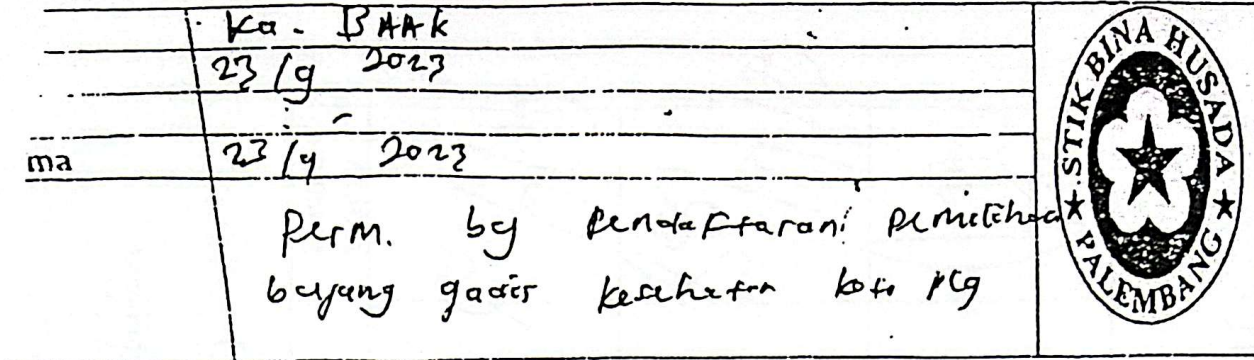 Ka. BAAK
23/9 2023
: -
ma 23/9 2023
Perm. by Pendaftaran Pemilihan
bujang gadis kesehatan kota plg
STIK BINA HUSADA
PALEMBANG